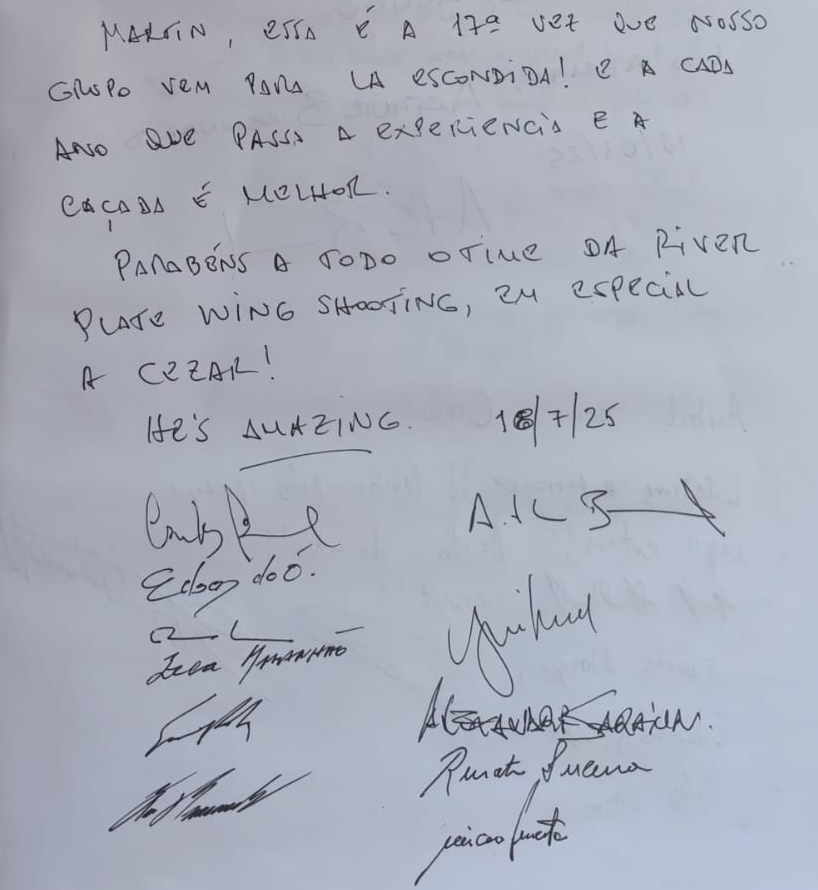 MARTIN, ESSA É A 17ª VEZ QUE NOSSO
GRUPO VEM PARA LA ESCONDIDA! E A CADA
ANO QUE PASSA A EXPERIENCIA E A
CAÇADA É MELHOR.
PARABÉNS A TODO O TIME DA RIVER
PLATE WING SHOOTING, EM ESPECIAL
A CEZAR!
HE'S AMAZING. 18/7/25
A.K B
Edson do Ó.
Zeca MARANHÃO
Renato Lucena